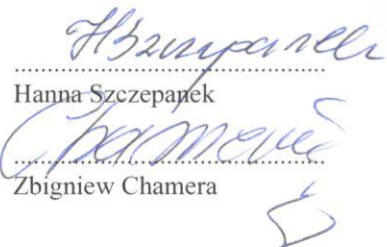 HSzczepanek
..........................................
Hanna Szczepanek
Chamera
..........................................
Zbigniew Chamera